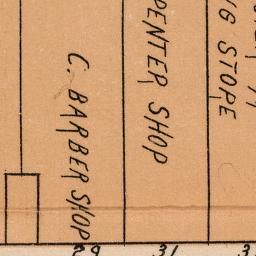 C. BARBER SHOP
PENTER SHOP
G STORE
29
31